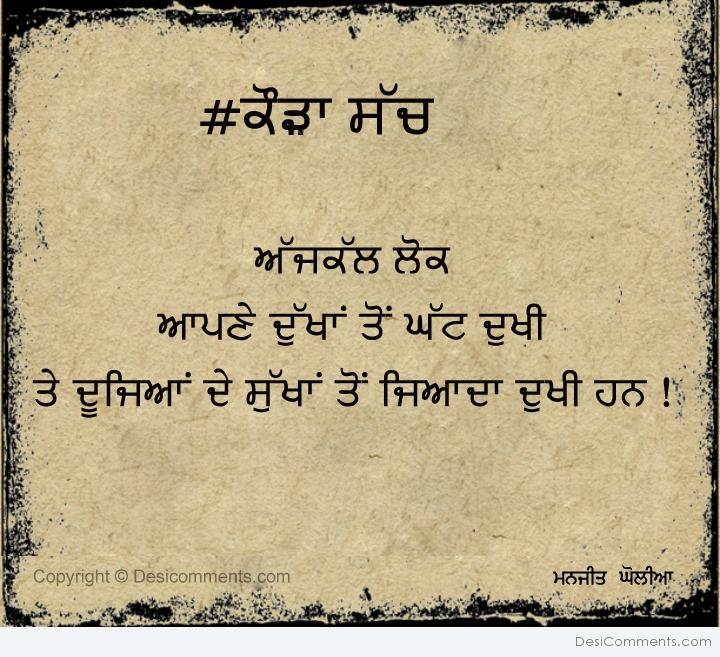 #ਕੌੜਾ ਸੱਚ
ਅੱਜਕੱਲ ਲੋਕ
ਆਪਣੇ ਦੁੱਖਾਂ ਤੋਂ ਘੱਟ ਦੁਖੀ
ਤੇ ਦੂਜਿਆਂ ਦੇ ਸੁੱਖਾਂ ਤੋਂ ਜਿਆਦਾ ਦੁਖੀ ਹਨ !
Copyright © Desicomments.com
ਮਨਜੀਤ ਘੋਲੀਆ
DesiComments.com